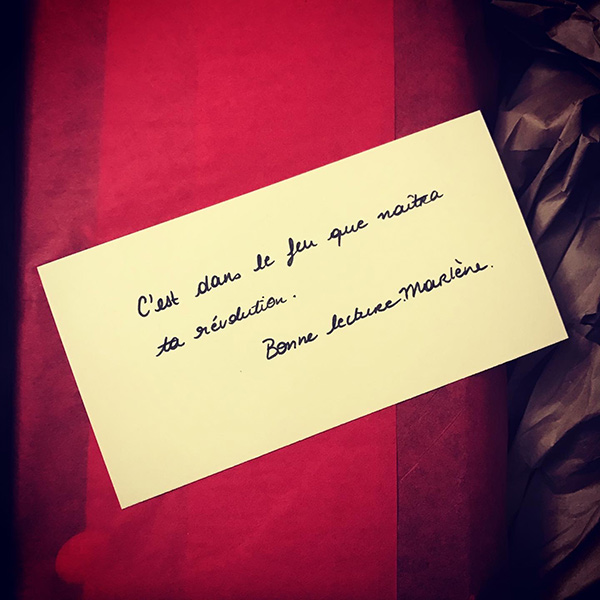 C'est dans le feu que naîtra
ta révolution.
Bonne lecture. Marlène.